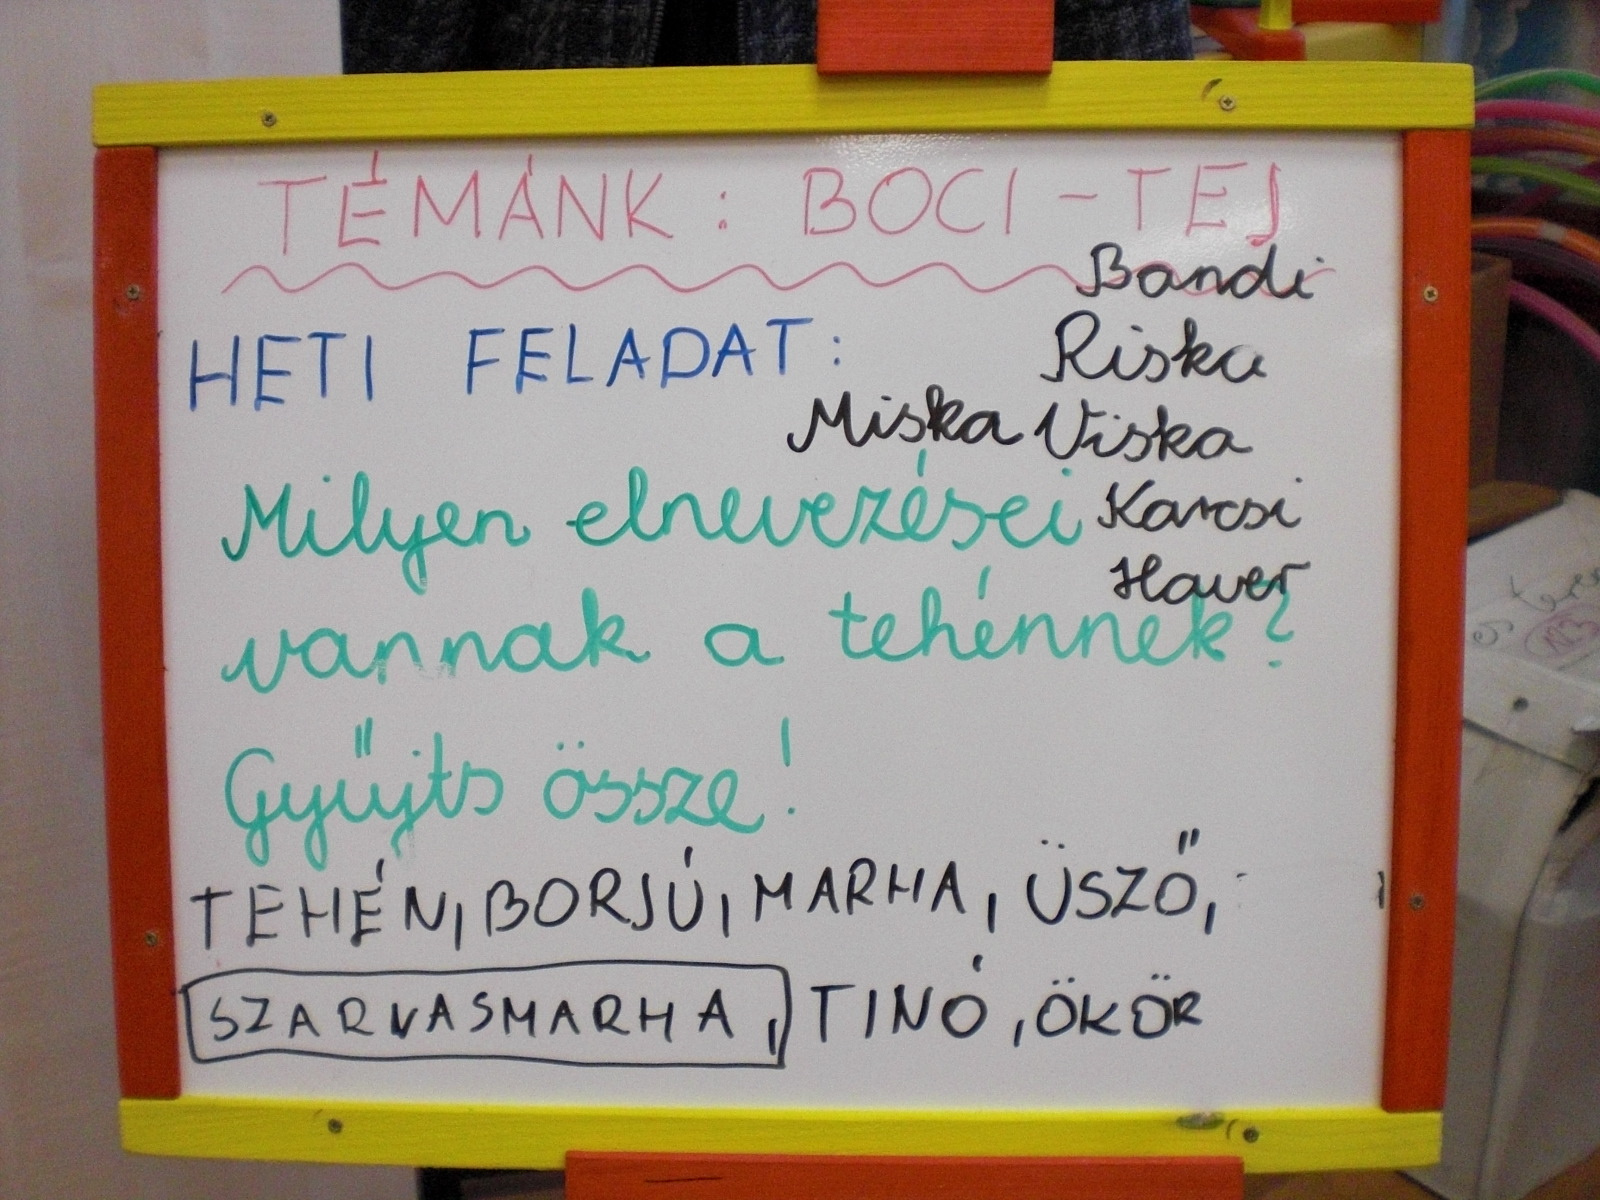 TÉMÁNK: BOCI-TEJ
Bandi
HETI FELADAT:
Riska
Miska Viska
Milyen elnevezései
Karcsi
Haver
vannak a tehénnek?
Gyűjts össze!
TEHÉN, BORJÚ, MARHA, ÜSZŐ,
SZARVASMARHA, TINÓ, ÖKÖR